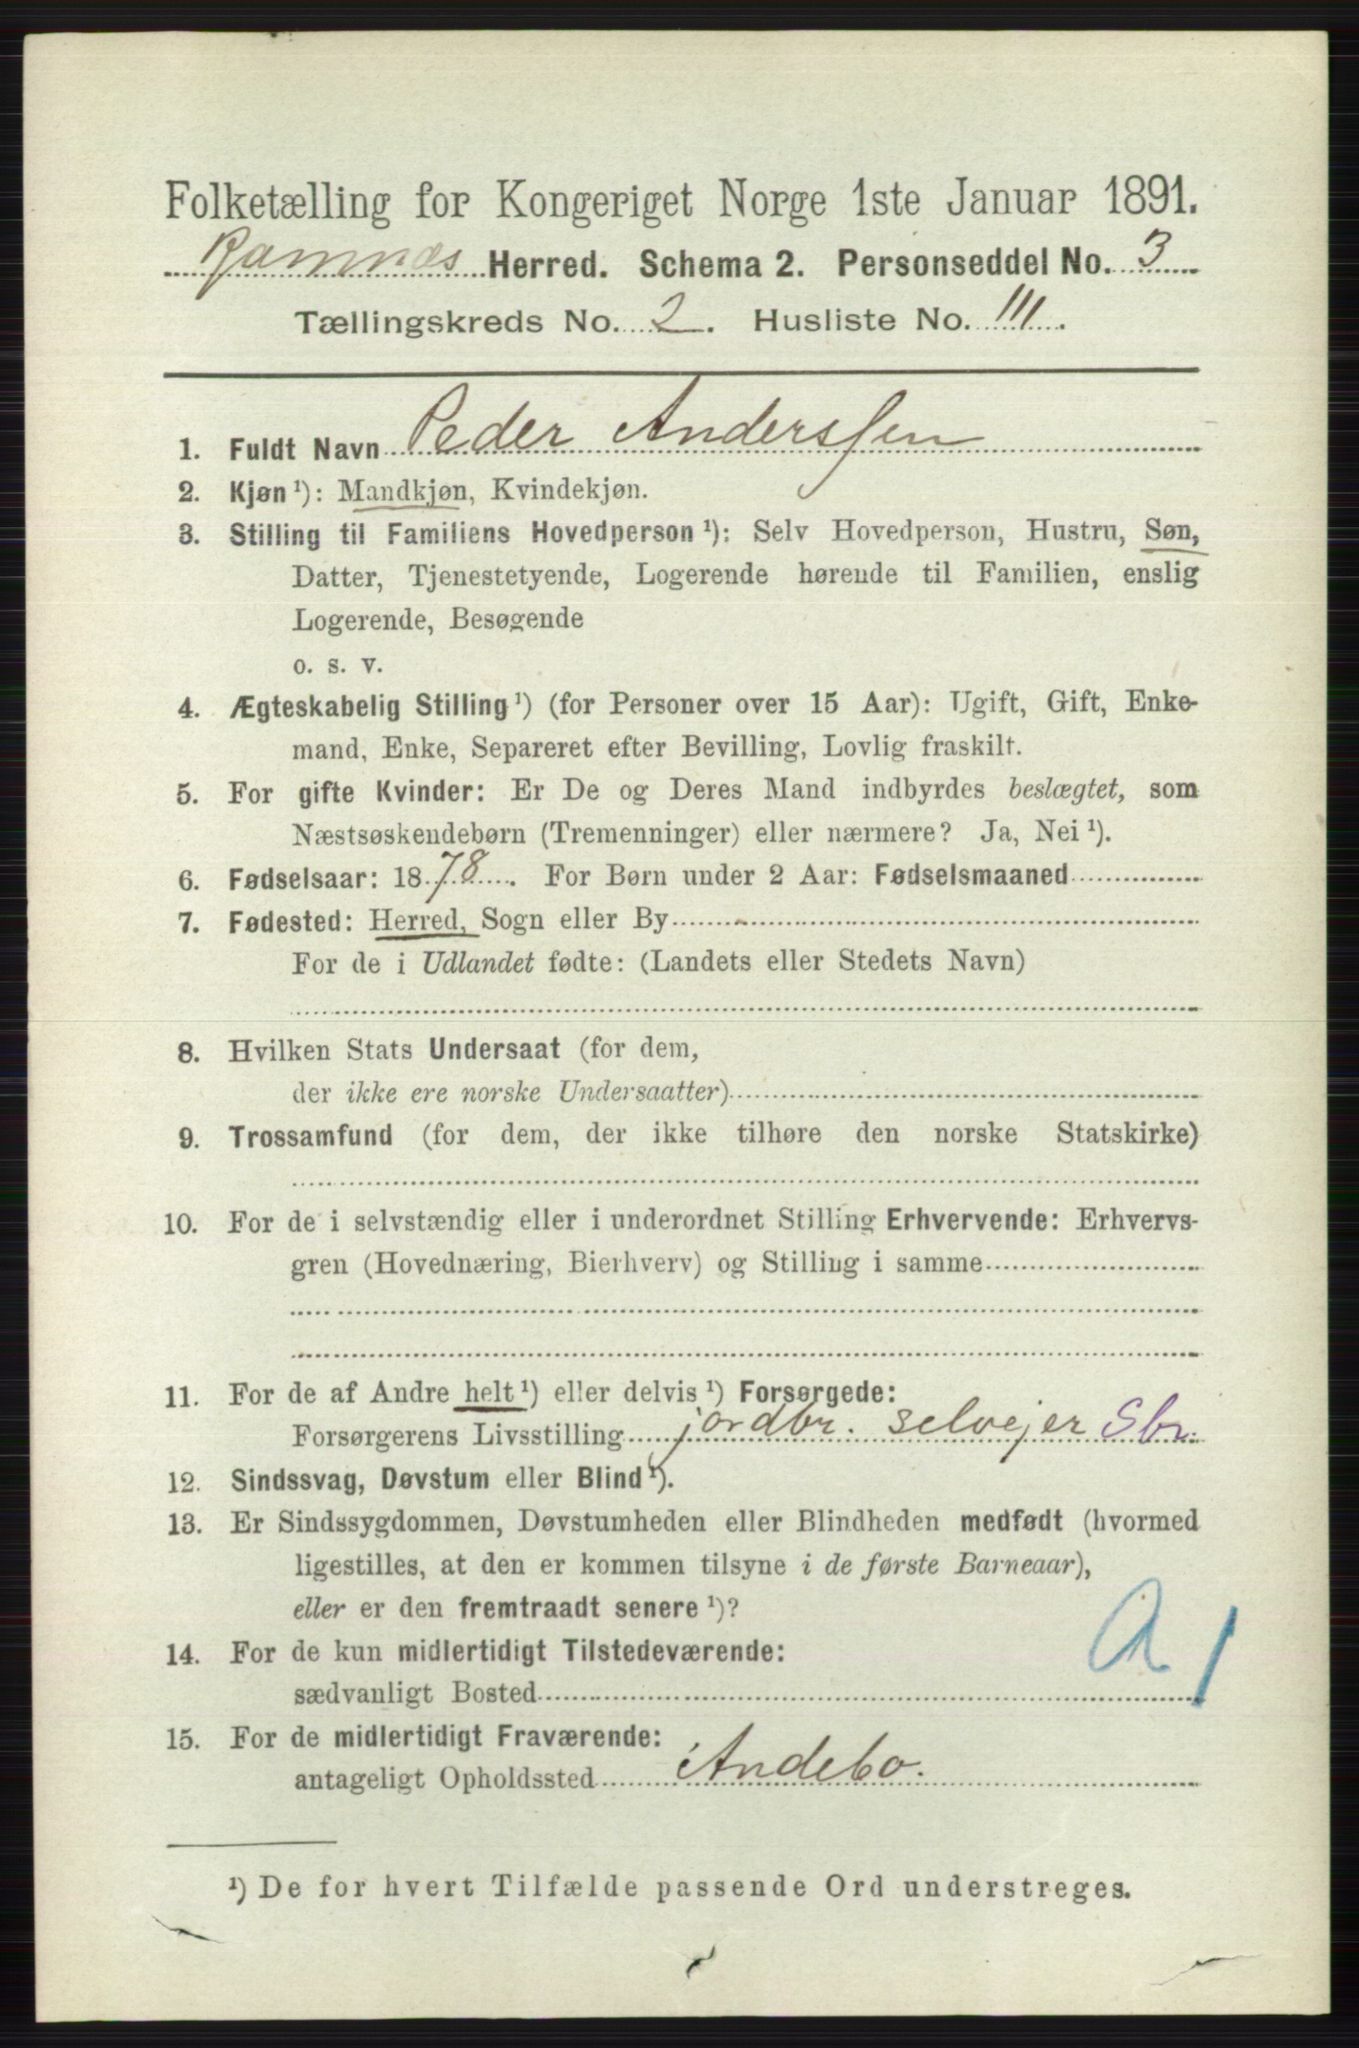 Folketælling for Kongeriget Norge 1ste Januar 1891.
Ramnes Herred. Schema 2. Personseddel No. 3
Tællingskreds No. 2. Husliste No. 111.
1. Fuldt Navn Peder Anderssen
2. Kjøn ¹): Mandkjøn, Kvindekjøn.
3. Stilling til Familiens Hovedperson ¹): Selv Hovedperson, Hustru, Søn,
Datter, Tjenestetyende, Logerende hørende til Familien, enslig
Logerende, Besøgende
o. s. v.
4. Ægteskabelig Stilling ¹) (for Personer over 15 Aar): Ugift, Gift, Enke-
mand, Enke, Separeret efter Bevilling, Lovlig fraskilt.
5. For gifte Kvinder: Er De og Deres Mand indbyrdes beslægtet, som
Næstsøskendebørn (Tremenninger) eller nærmere? Ja, Nei ¹).
6. Fødselsaar: 1878. For Børn under 2 Aar: Fødselsmaaned
7. Fødested: Herred, Sogn eller By
For de i Udlandet fødte: (Landets eller Stedets Navn)
8. Hvilken Stats Undersaat (for dem,
der ikke ere norske Undersaatter)
9. Trossamfund (for dem, der ikke tilhøre den norske Statskirke)
10. For de i selvstændig eller i underordnet Stilling Erhvervende: Erhvervs-
gren (Hovednæring, Bierhverv) og Stilling i samme
11. For de af Andre helt ¹) eller delvis ¹) Forsørgede:
Forsørgerens Livsstilling jordbr. selvejer Sbr.
12. Sindssvag, Døvstum eller Blind ¹).
13. Er Sindssygdommen, Døvstumheden eller Blindheden medfødt (hvormed
ligestilles, at den er kommen tilsyne i de første Barneaar),
eller er den fremtraadt senere ¹)?
14. For de kun midlertidigt Tilstedeværende:
sædvanligt Bosted
A 1
15. For de midlertidigt Fraværende:
antageligt Opholdssted Andebo.
¹) De for hvert Tilfælde passende Ord understreges.